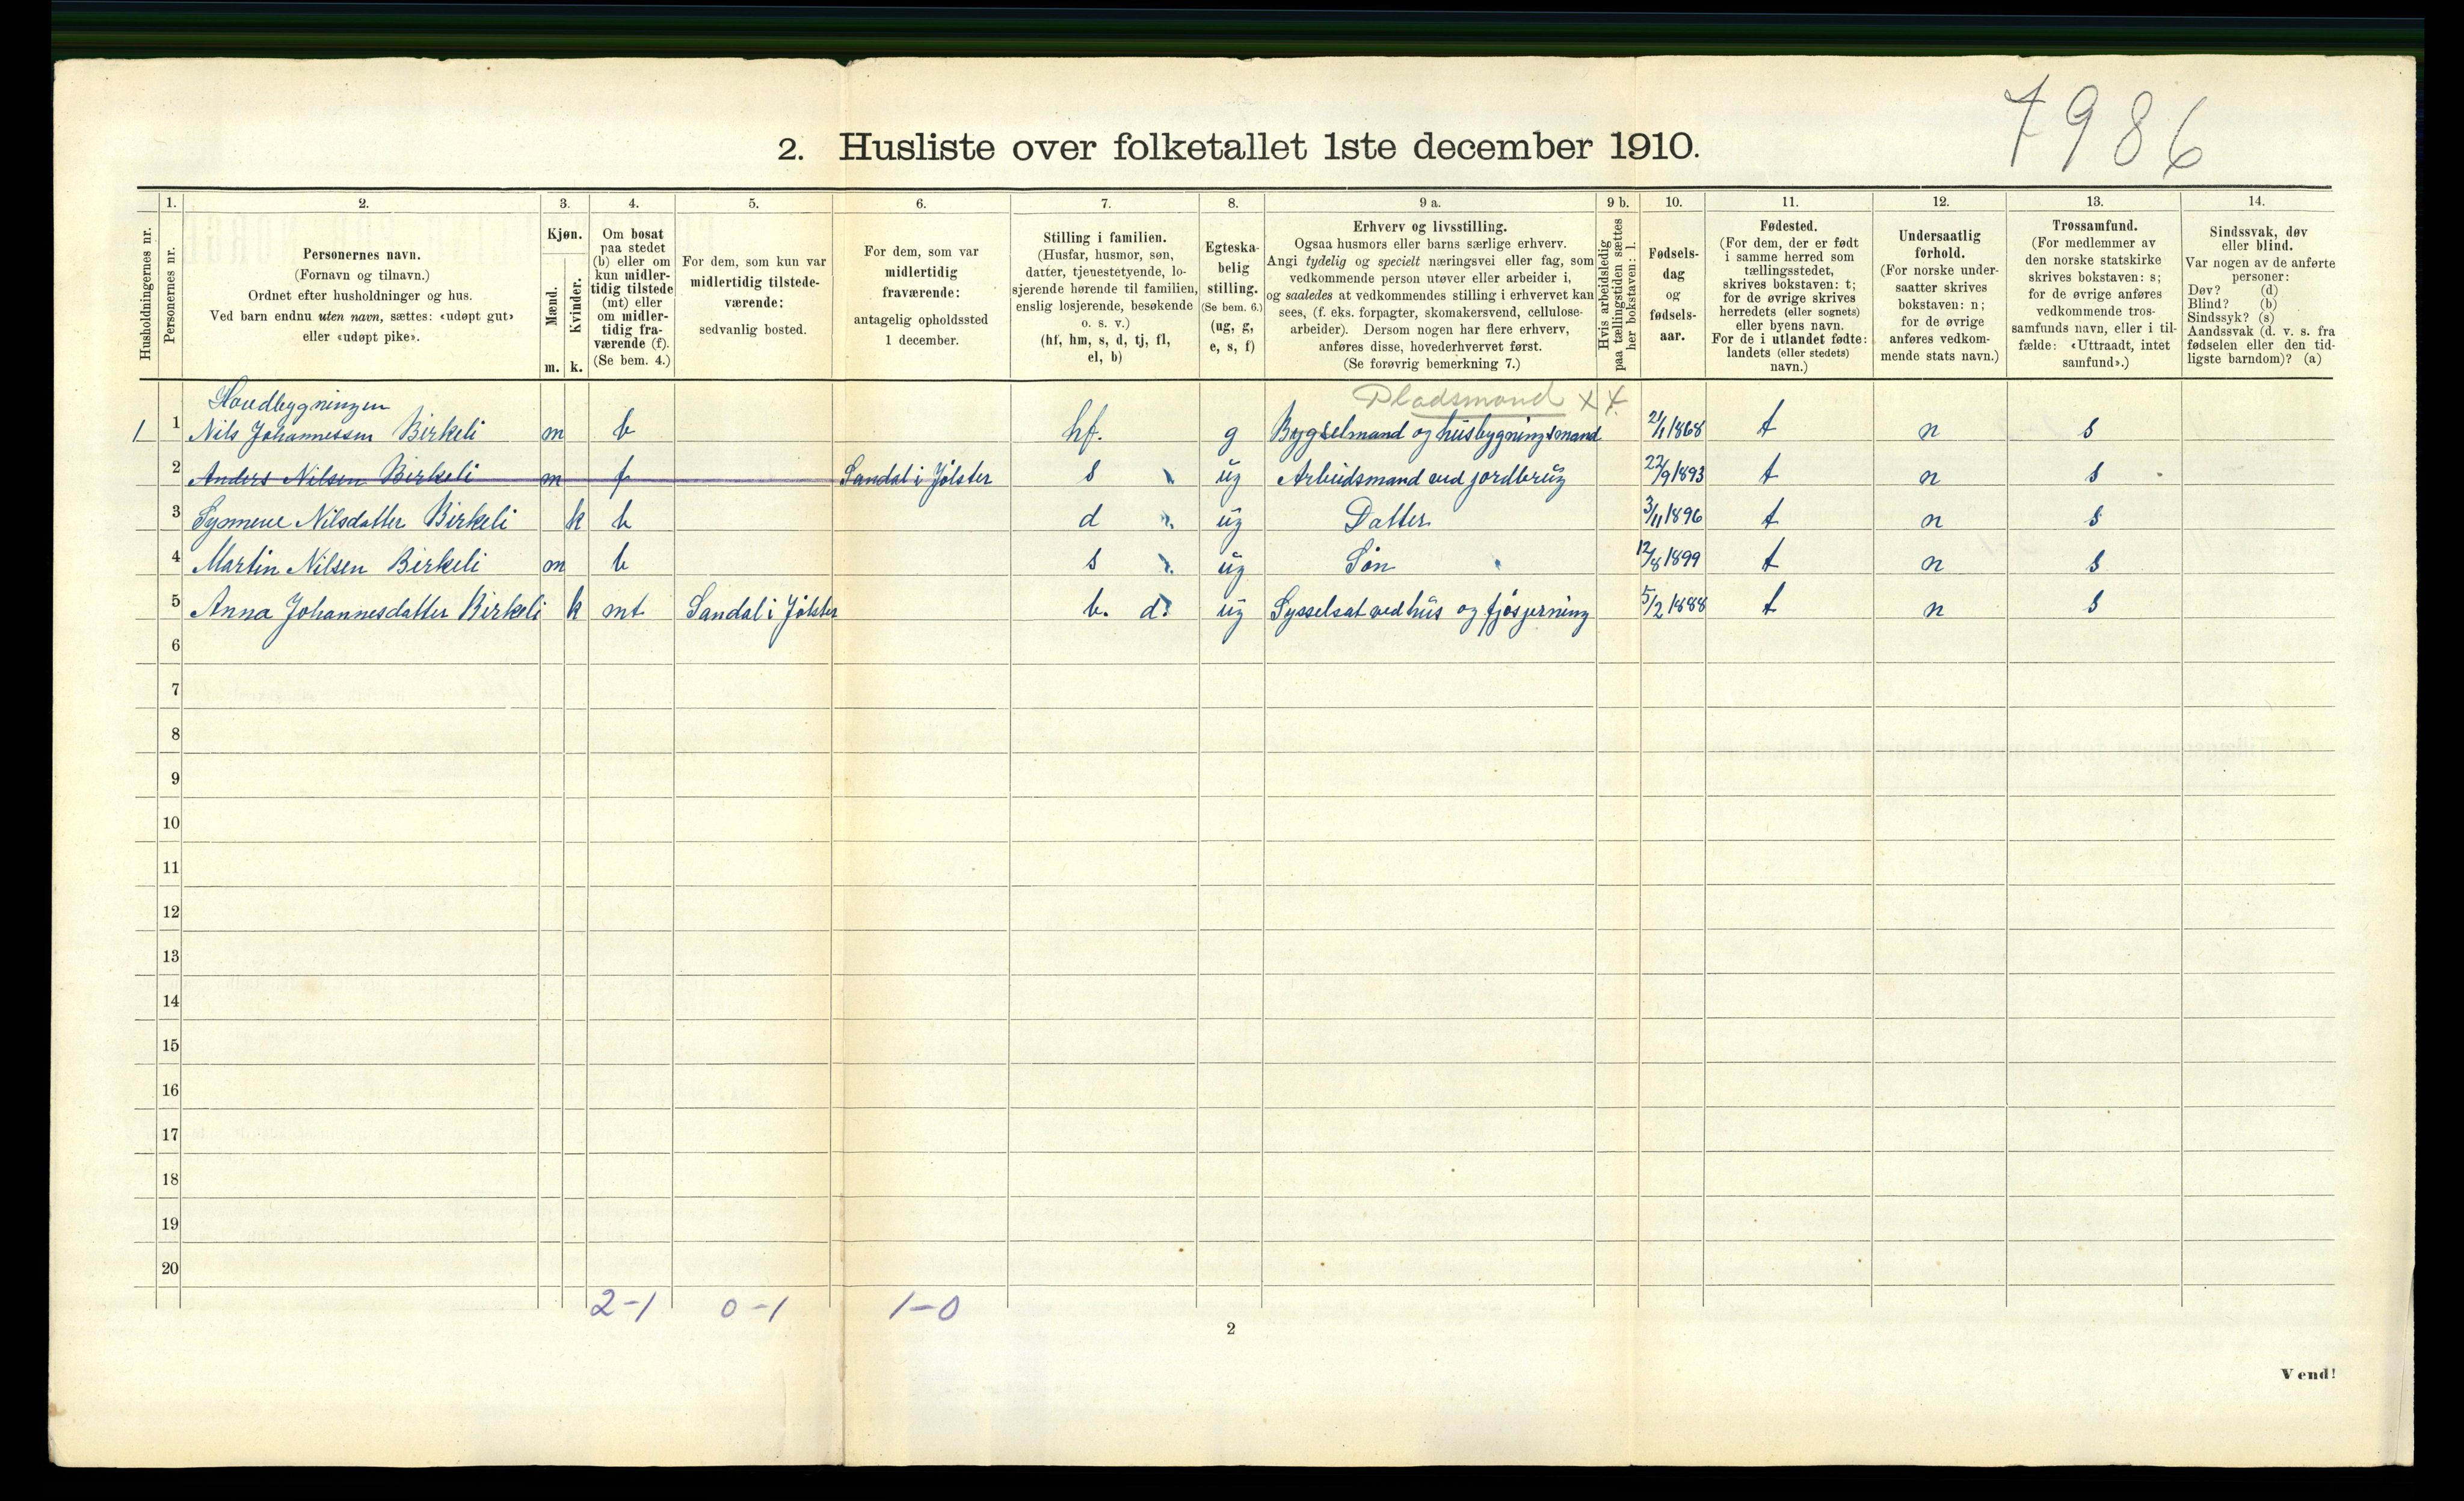 7986
2. Husliste over folketallet 1ste december 1910.
Husholdningernes nr.
1.
Personernes nr.
2.
Personernes navn.
(Fornavn og tilnavn.)
Ordnet efter husholdninger og hus.
Ved barn endnu uten navn, sættes: «udøpt gut»
eller «udøpt pike».
3.
Kjøn.
Mænd.
Kvinder.
m. k.
4.
Om bosat
paa stedet
(b) eller om
kun midler-
tidig tilstede
(mt) eller
om midler-
tidig fra-
værende (f).
(Se bem. 4.)
5.
For dem, som kun var
midlertidig tilstede-
værende:
sedvanlig bosted.
6.
For dem, som var
midlertidig
fraværende:
antagelig opholdssted
1 december.
7.
Stilling i familien.
(Husfar, husmor, søn,
datter, tjenestetyende, lo-
sjerende hørende til familien,
enslig losjerende, besøkende
o. s. v.)
(hf, hm, s, d, tj, fl,
el, b)
8.
Egteska-
belig
stilling.
(Se bem. 6.)
(ug, g,
e, s, f)
9 a.
Erhverv og livsstilling.
Ogsaa husmors eller barns særlige erhverv.
Angi tydelig og specielt næringsvei eller fag, som
vedkommende person utøver eller arbeider i,
og saaledes at vedkommendes stilling i erhvervet kan
sees, (f. eks. forpagter, skomakersvend, cellulose-
arbeider). Dersom nogen har flere erhverv,
anføres disse, hovederhvervet først.
(Se forøvrig bemerkning 7.)
9 b.
Hvis arbeidsledig
paa tællingstiden sættes
her bokstaven: l.
10.
Fødsels-
dag
og
fødsels-
aar.
11.
Fødested.
(For dem, der er født
i samme herred som
tællingsstedet,
skrives bokstaven: t;
for de øvrige skrives
herredets (eller sognets)
eller byens navn.
For de i utlandet fødte:
landets (eller stedets)
navn.)
12.
Undersaatlig
forhold.
(For norske under-
saatter skrives
bokstaven: n;
for de øvrige
anføres vedkom-
mende stats navn.)
13.
Trossamfund.
(For medlemmer av
den norske statskirke
skrives bokstaven: s;
for de øvrige anføres
vedkommende tros-
samfunds navn, eller i til-
fælde: «Uttraadt, intet
samfund».)
14.
Sindssvak, døv
eller blind.
Var nogen av de anførte
personer:
Døv? (d)
Blind? (b)
Sindssyk? (s)
Aandssvak (d. v. s. fra
fødselen eller den tid-
ligste barndom)? (a)
Hovedbygningen Pladsmand x x
1 1 Nils Johannessen Birkeli m b hf. g Bygselmand og husbygningsmand 21/1 1868 t n s
2 Anders Nilsen Birkeli m f Sandal i Jølster s ug Arbeidsmand ved jordbrug 22/9 1893 t n s
3 Synneve Nilsdatter Birkeli k b d ug Datter 3/11 1896 t n s
4 Martin Nilsen Birkeli m b s ug Søn 12/8 1899 t n s
5 Anna Johannesdatter Birkeli k mt Sandal i Jølster b. d. ug Sysselsat ved hus og fjøsgjerning 5/2 1888 t n s
6
7
8
9
10
11
12
13
14
15
16
17
18
19
20
2-1 0-1 1-0
2
Vend!